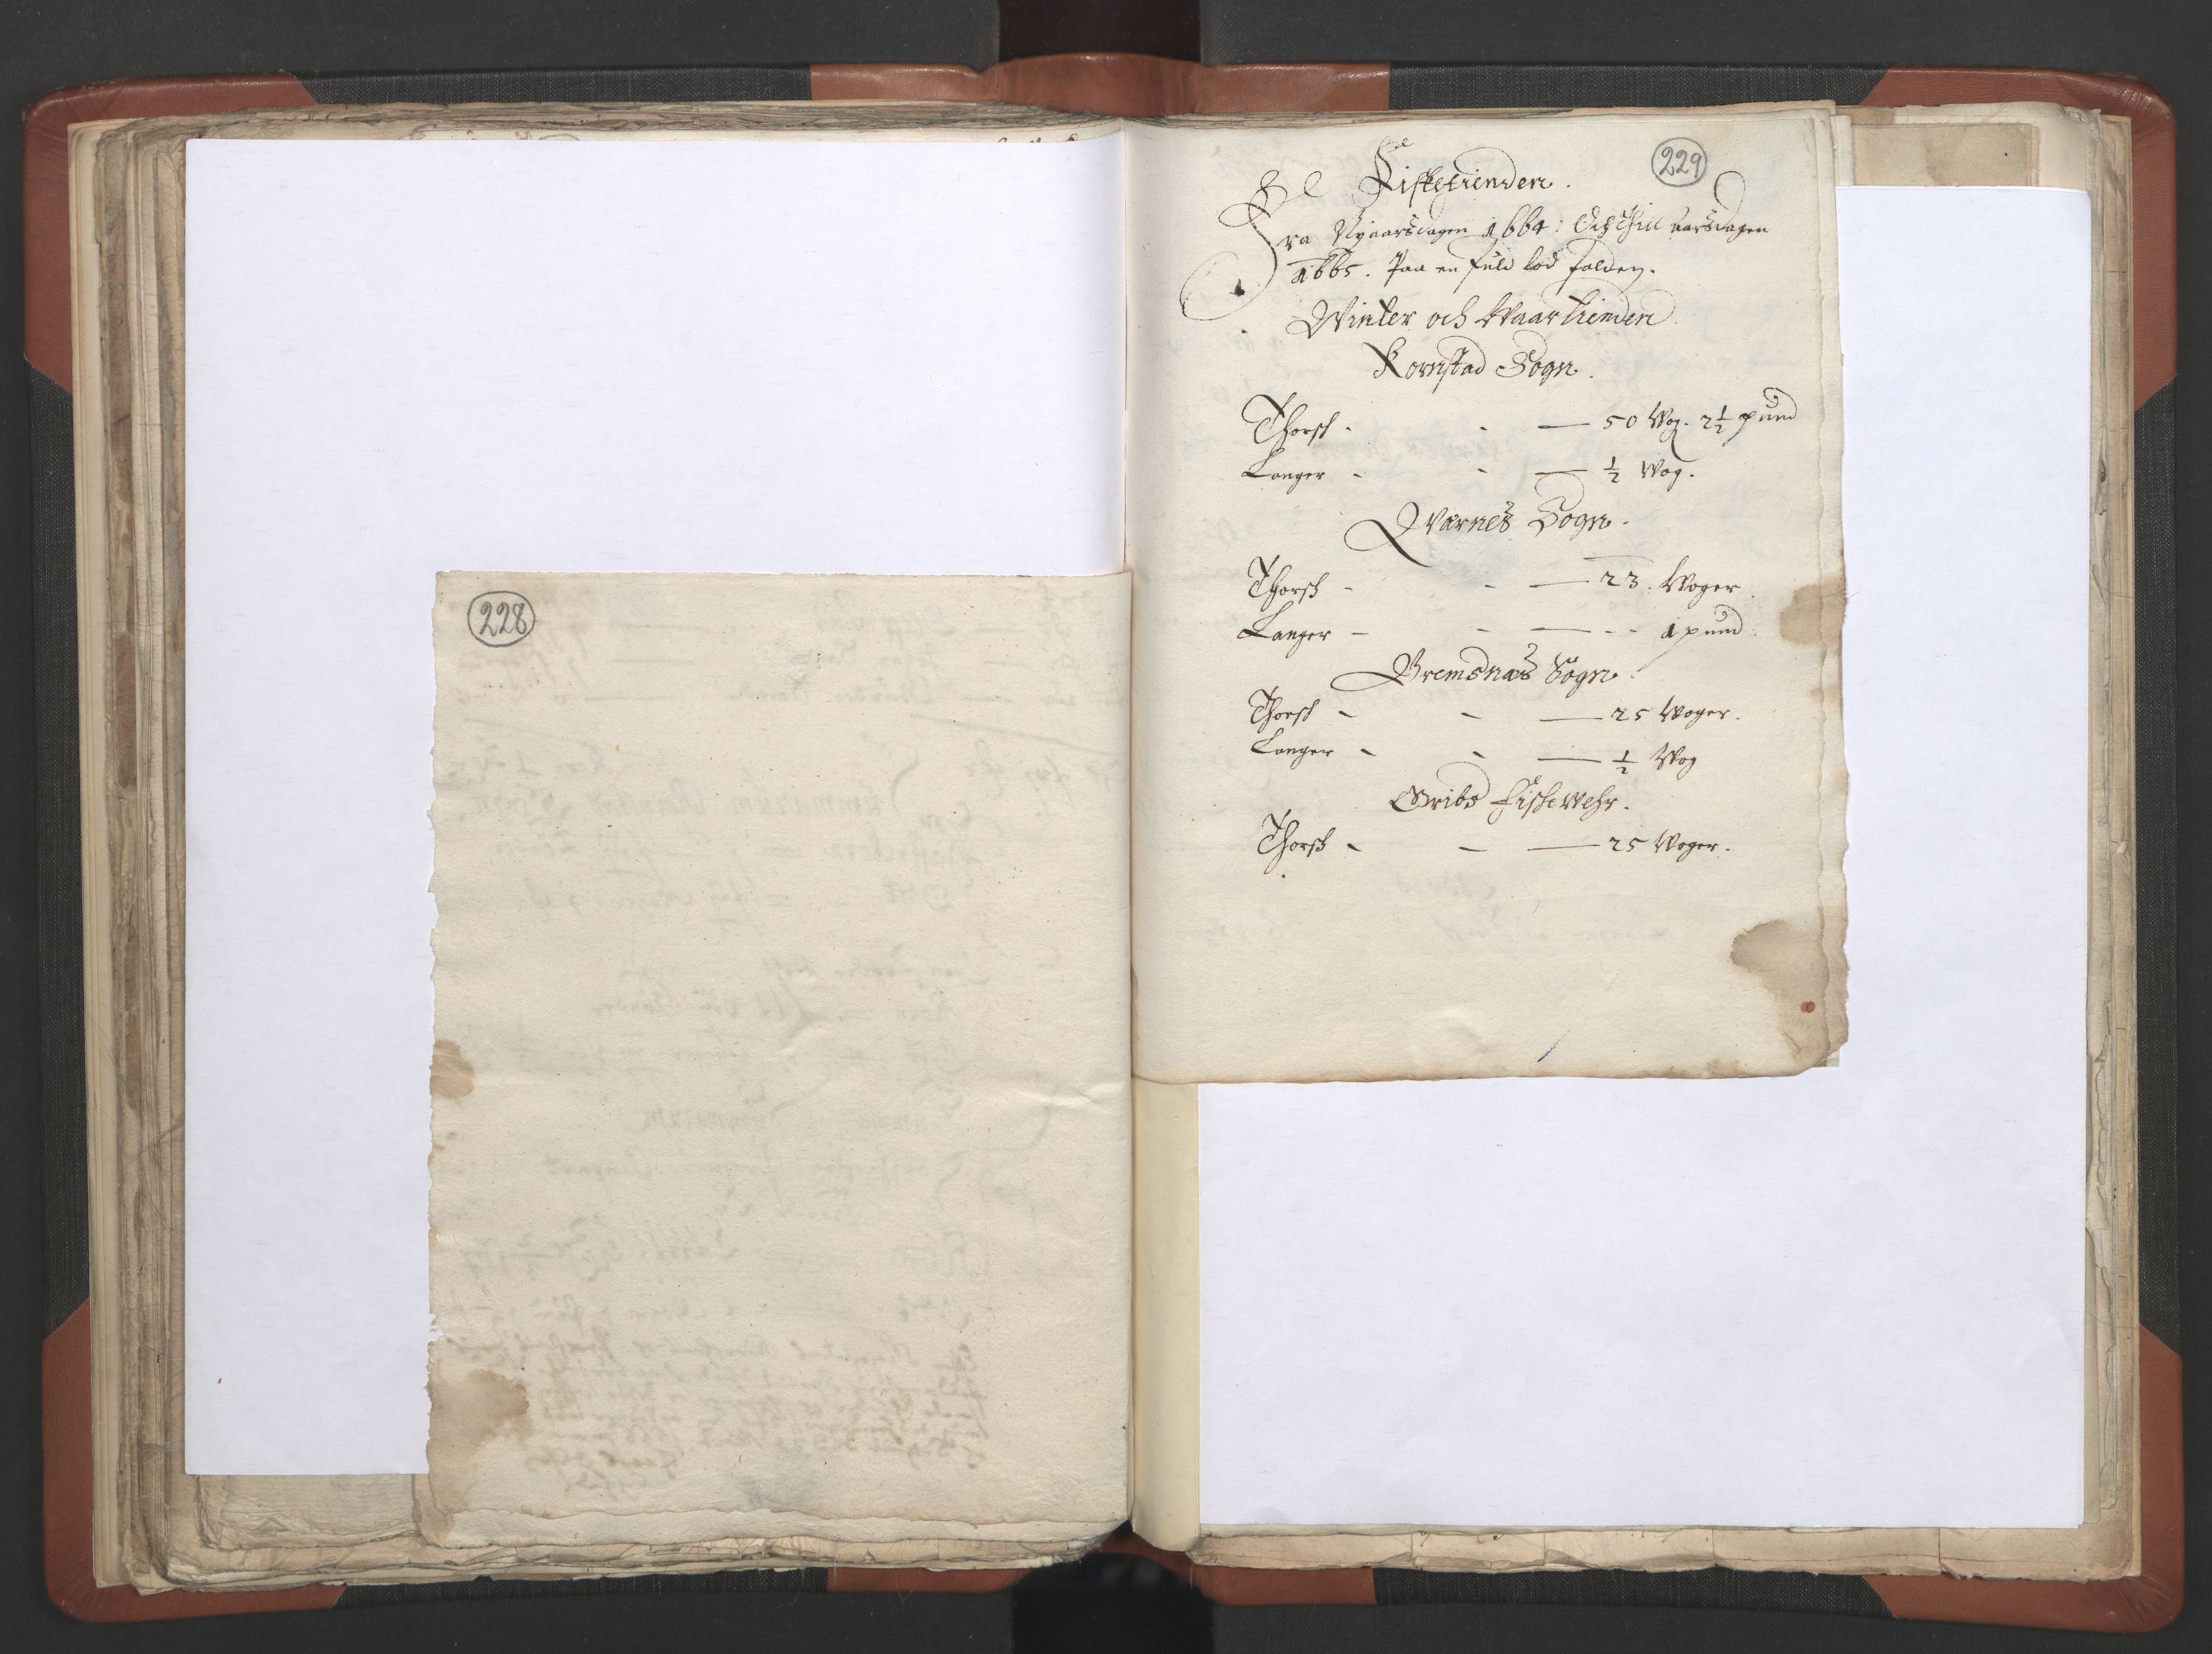 228
229
Fisketienden.
Fra Nyaarsdagen 1664: Och Thill aarsdagen
1665. Paa en fuld
Winter och Waar tienden
Kornstad Sogn.
Thorsk - - — 50 Wog. 2½ pund
Langer - - — ½ Wog.
Qvarnes Sogn.
Thorsk - - — 23. Woger.
Langer - - — - - 1 pund.
Bremsnæs Sogn.
Thorsk - - — 25 Woger.
Langer - - — ½ Wog
Gribs Fiskewehr.
Thorsk - - — 25 Woger.